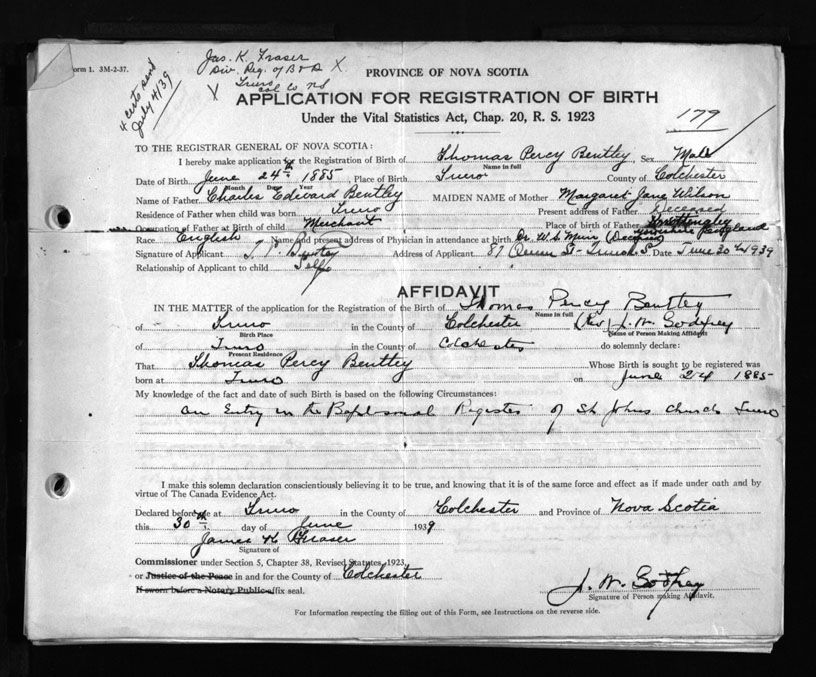 Form 1. 3M-2-37.
Jas. K. Fraser
Div. Reg. of B & D X
X Truro
Col Co NS
4 certs send
July 4/39
PROVINCE OF NOVA SCOTIA
APPLICATION FOR REGISTRATION OF BIRTH
Under the Vital Statistics Act, Chap. 20, R. S. 1923
179
TO THE REGISTRAR GENERAL OF NOVA SCOTIA:
I hereby make application for the Registration of Birth of Thomas Percy Bentley Sex Male
Name in full
Date of Birth June 24th 1885, Place of Birth Truro County of Colchester
Month Day Year
Name of Father Charles Edward Bentley MAIDEN NAME of Mother Margaret Jane Wilson
Residence of Father when child was born Truro Present address of Father Deceased
Occupation of Father at Birth of child Merchant Place of birth of Father Yorkshire England
Race English Name and present address of Physician in attendance at birth Dr. W. S. Muir (Deceased)
Signature of Applicant T. P. Bentley Address of Applicant 87 Queen St- Truro N.S. Date June 30th 1939
Relationship of Applicant to child Self
AFFIDAVIT
IN THE MATTER of the application for the Registration of the Birth of Thomas Percy Bentley
Name in full
of Truro in the County of Colchester (Rev) J. W. Godfrey
Birth Place Name of Person Making Affidavit
of Truro in the County of Colchester do solemnly declare:
Present Residence
That Thomas Percy Bentley Whose Birth is sought to be registered was
born at Truro on June 24 1885
My knowledge of the fact and date of such Birth is based on the following Circumstances:
An Entry in the Baptismal Register of St. Johns Church Truro
I make this solemn declaration conscientiously believing it to be true, and knowing that it is of the same force and effect as if made under oath and by
virtue of The Canada Evidence Act.
Declared before me at Truro in the County of Colchester and Province of Nova Scotia
this 30th day of June 1939
James K Fraser
Signature of
Commissioner under Section 5, Chapter 38, Revised Statutes, 1923,
or Justice of the Peace in and for the County of Colchester
If sworn before a Notary Public affix seal.
J. W. Godfrey
Signature of Person making Affidavit.
For Information respecting the filling out of this Form, see Instructions on the reverse side.